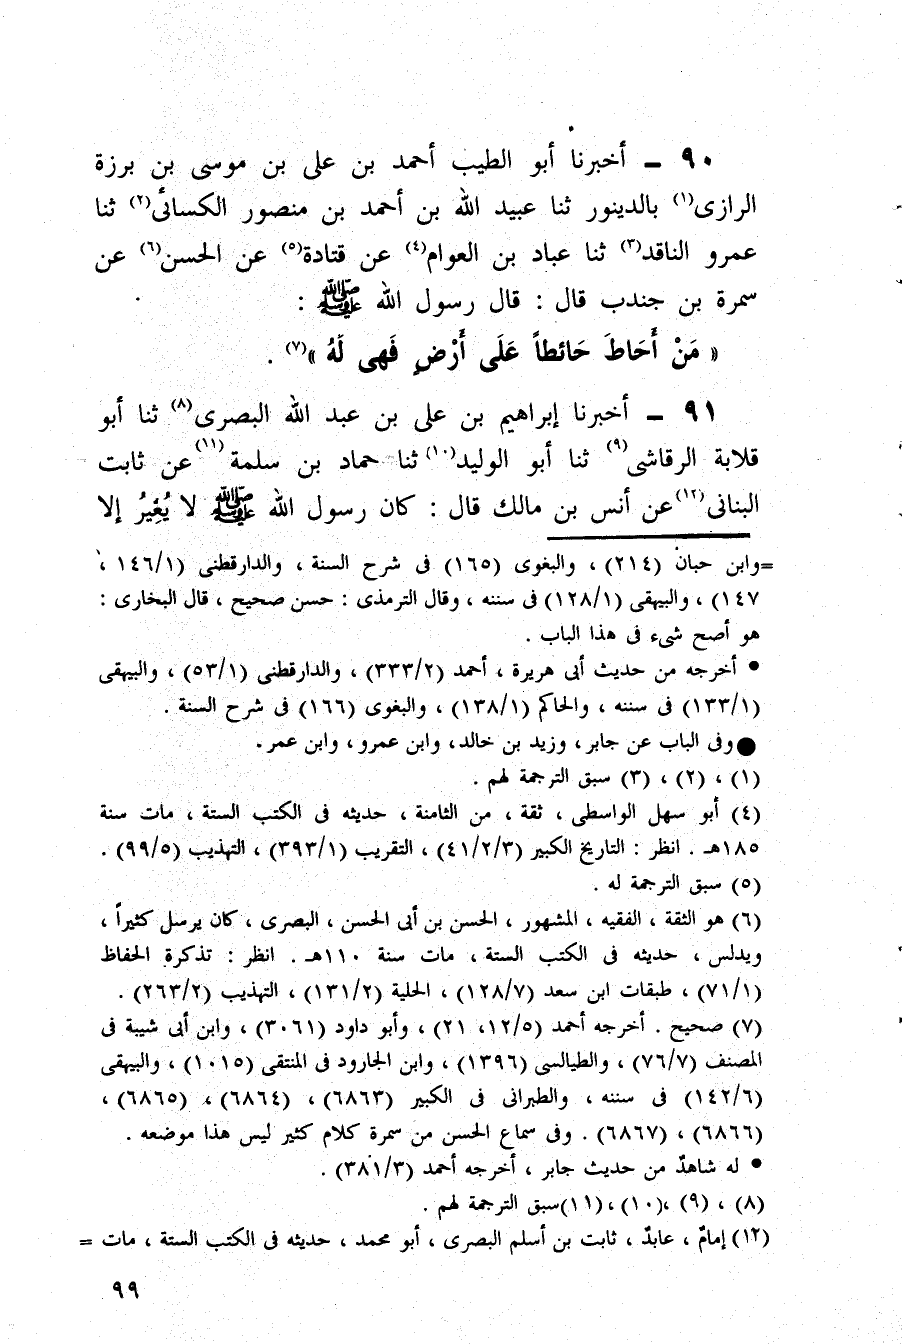 ٩٠ ــ أخبرنا أبو الطيب أحمد بن على بن موسى بن برزة
الرازى(١) بالدينور ثنا عبيد الله بن أحمد بن منصور الكسائى(٢) ثنا
عمرو الناقد(٣) ثنا عباد بن العوام(٤) عن قتادة(٥) عن الحسن(٦) عن
سمرة بن جندب قال : قال رسول الله ﷺ :
« مَنْ أَحَاطَ حَائطاً عَلَى أَرْضٍ فَهى لَهُ »(٧) .
٩١ ــ أخبرنا إبراهيم بن على بن عبد الله البصرى(٨) ثنا أبو
قلابة الرقاشى(٩) ثنا أبو الوليد(١٠) ثنا حماد بن سلمة(١١) عن ثابت
البنانى(١٢) عن أنس بن مالك قال : كان رسول الله ﷺ لا يُغِيرُ إلا
=وابن حبان (٢١٤) ، والبغوى (١٦٥) فى شرح السنة ، والدارقطنى (١٤٦/١ ،
١٤٧) ، والبيهقى (١٢٨/١) فى سننه ، وقال الترمذى : حسن صحيح ، قال البخارى :
هو أصح شىء فى هذا الباب .
• أخرجه من حديث أبى هريرة ، أحمد (٣٣٣/٢) ، والدارقطنى (٥٣/١) ، والبيهقى
(١٣٣/١) فى سننه ، والحاكم (١٣٨/١) ، والبغوى (١٦٦) فى شرح السنة .
● وفى الباب عن جابر، وزيد بن خالد، وابن عمرو، وابن عمر.
(١) ، (٢) ، (٣) سبق الترجمة لهم .
(٤) أبو سهل الواسطى ، ثقة ، من الثامنة ، حديثه فى الكتب الستة ، مات سنة
١٨٥هـ . انظر : التاريخ الكبير (٤١/٢/٣) ، التقريب (٣٩٣/١) ، التهذيب (٩٩/٥) .
(٥) سبق الترجمة له .
(٦) هو الثقة ، الفقيه ، المشهور ، الحسن بن أبى الحسن ، البصرى ، كان يرسل كثيراً ،
ويدلس ، حديثه فى الكتب الستة ، مات سنة ١١٠هـ . انظر : تذكرة الحفاظ
(٧١/١) ، طبقات ابن سعد (١٢٨/٧) ، الحلية (١٣١/٢) ، التهذيب (٢٦٣/٢) .
(٧) صحيح . أخرجه أحمد (١٢/٥، ٢١) ، وأبو داود (٣٠٦١) ، وابن أبى شيبة فى
المصنف (٧٦/٧) ، والطيالسى (١٣٩٦) ، وابن الجارود فى المنتقى (١٠١٥) ، والبيهقى
(١٤٢/٦) فى سننه ، والطبرانى فى الكبير (٦٨٦٣) ، (٦٨٦٤) ، (٦٨٦٥) ،
(٦٨٦٦) ، (٦٨٦٧) . وفى سماع الحسن من سمرة كلام كثير ليس هذا موضعه .
• له شاهدٌ من حديث جابر ، أخرجه أحمد (٣٨١/٣) .
(٨) ، (٩) ،(١٠) ،(١١)سبق الترجمة لهم .
(١٢) إمامٌ ، عابدٌ ، ثابت بن أسلم البصرى ، أبو محمد ، حديثه فى الكتب الستة ، مات =
٩٩